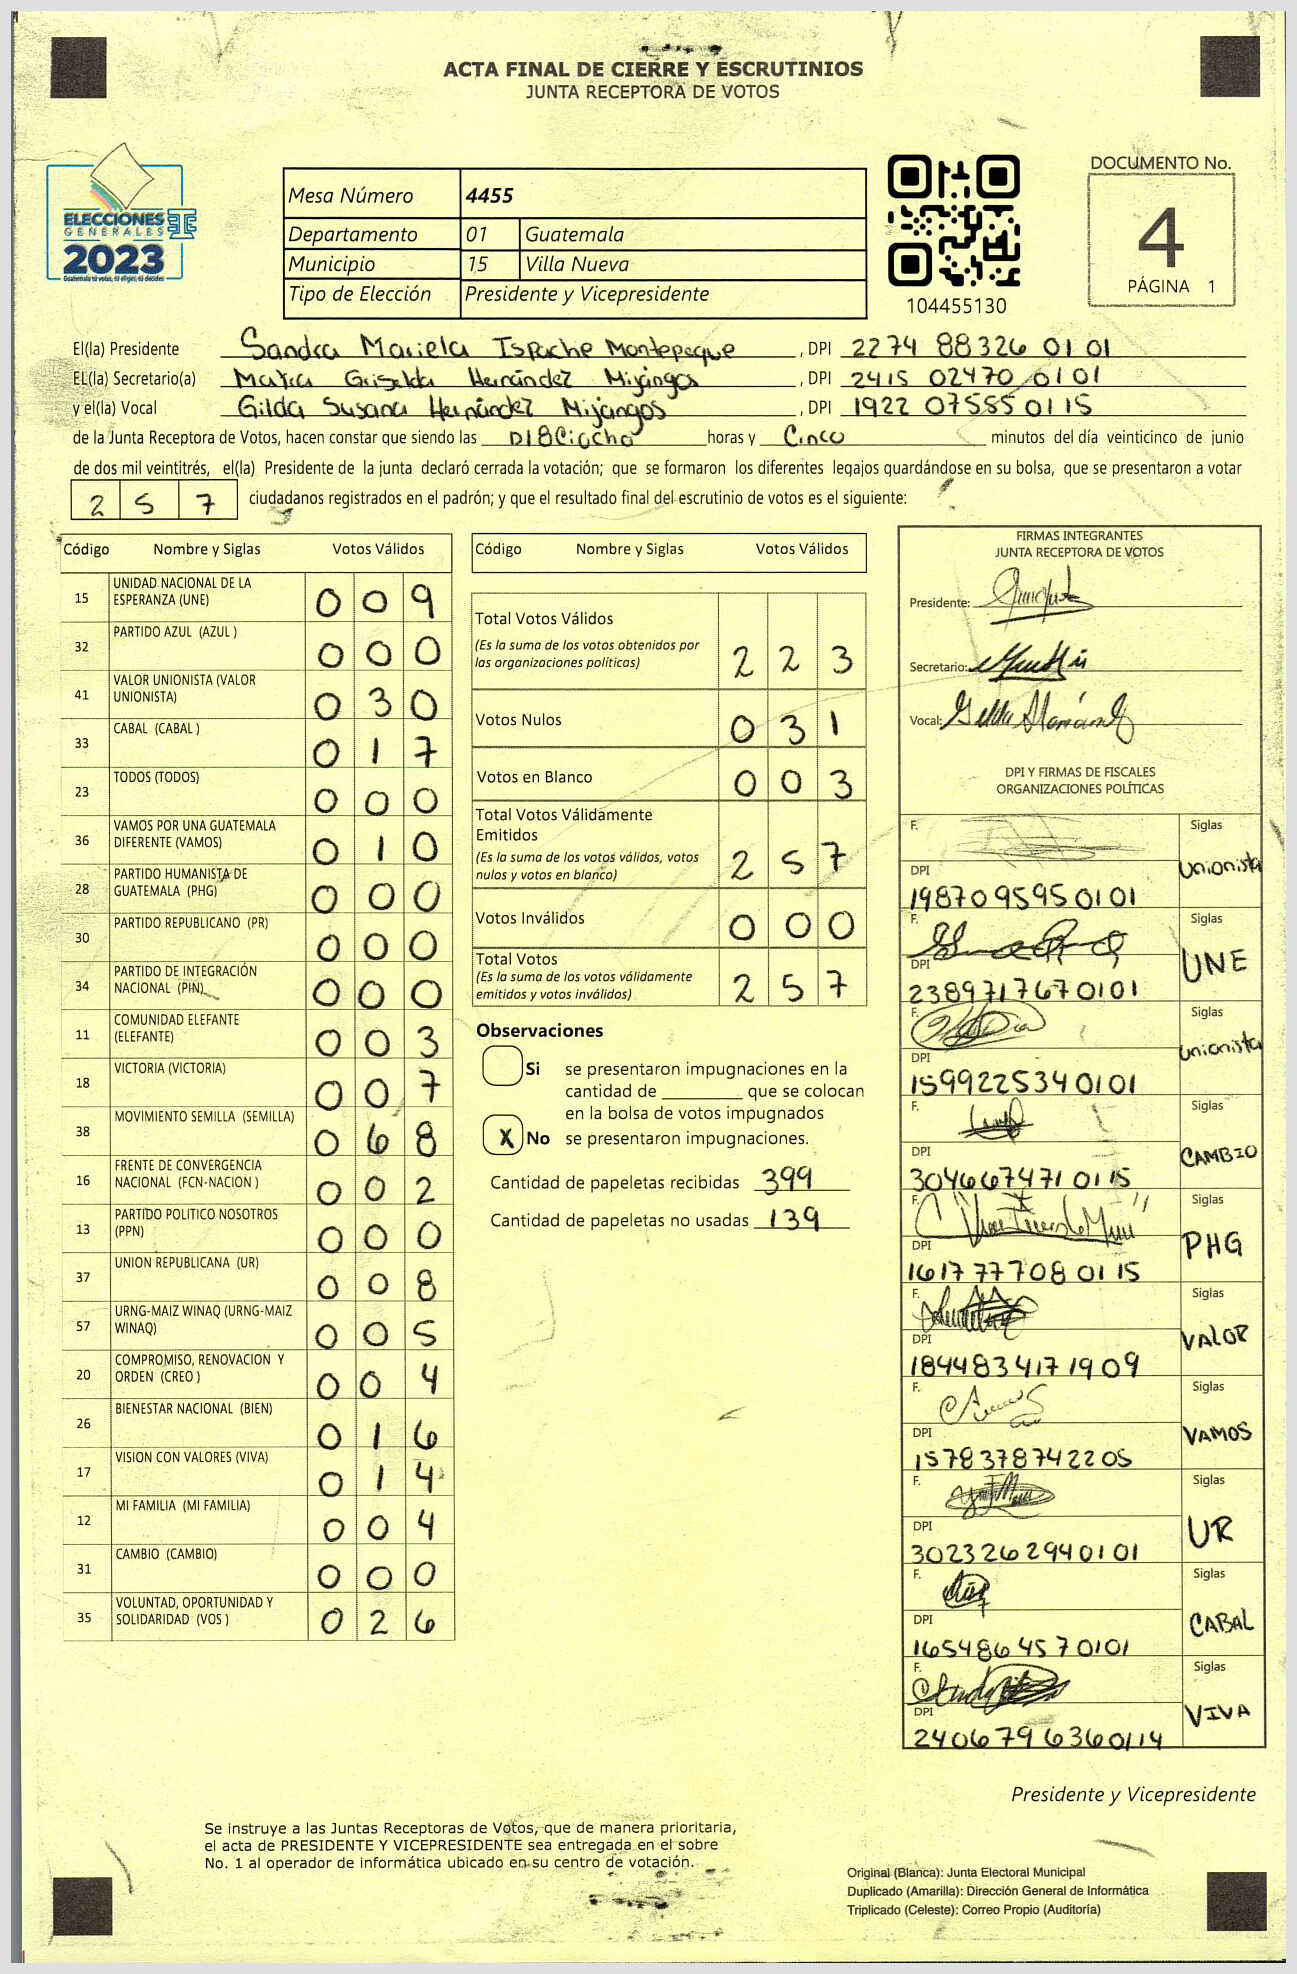 ACTA FINAL DE CIERRE Y ESCRUTINIOS
JUNTA RECEPTORA DE VOTOS
ELECCIONES
GENERALES
2023
Guatemala tú votas, tú eliges, tú decides
TSE
Mesa Número 4455
Departamento 01 Guatemala
Municipio 15 Villa Nueva
Tipo de Elección Presidente y Vicepresidente
104455130
DOCUMENTO No.
4
PÁGINA 1
El(la) Presidente Sandra Mariela Ispache Montepeque, DPI 2274 88326 0101
EL(la) Secretario(a) Mayra Griselda Hernández Mijangos, DPI 2415 02470 0101
y el(la) Vocal Gilda Susana Hernández Mijangos, DPI 1922 07585 0115
de la Junta Receptora de Votos, hacen constar que siendo las DI8Ciocho horas y Cinco minutos del día veinticinco de junio
de dos mil veintitrés, el(la) Presidente de la junta declaró cerrada la votación; que se formaron los diferentes legajos guardándose en su bolsa, que se presentaron a votar
2 5 7 ciudadanos registrados en el padrón; y que el resultado final del escrutinio de votos es el siguiente:
Código Nombre y Siglas Votos Válidos
15 UNIDAD NACIONAL DE LA ESPERANZA (UNE) 0 0 9
32 PARTIDO AZUL (AZUL ) 0 0 0
41 VALOR UNIONISTA (VALOR UNIONISTA) 0 3 0
33 CABAL (CABAL ) 0 1 7
23 TODOS (TODOS) 0 0 0
36 VAMOS POR UNA GUATEMALA DIFERENTE (VAMOS) 0 1 0
28 PARTIDO HUMANISTA DE GUATEMALA (PHG) 0 0 0
30 PARTIDO REPUBLICANO (PR) 0 0 0
34 PARTIDO DE INTEGRACIÓN NACIONAL (PIN) 0 0 0
11 COMUNIDAD ELEFANTE (ELEFANTE) 0 0 3
18 VICTORIA (VICTORIA) 0 0 7
38 MOVIMIENTO SEMILLA (SEMILLA) 0 6 8
16 FRENTE DE CONVERGENCIA NACIONAL (FCN-NACION ) 0 0 2
13 PARTIDO POLITICO NOSOTROS (PPN) 0 0 0
37 UNION REPUBLICANA (UR) 0 0 8
57 URNG-MAIZ WINAQ (URNG-MAIZ WINAQ) 0 0 5
20 COMPROMISO, RENOVACION Y ORDEN (CREO ) 0 0 4
26 BIENESTAR NACIONAL (BIEN) 0 1 6
17 VISION CON VALORES (VIVA) 0 1 4
12 MI FAMILIA (MI FAMILIA) 0 0 4
31 CAMBIO (CAMBIO) 0 0 0
35 VOLUNTAD, OPORTUNIDAD Y SOLIDARIDAD (VOS ) 0 2 6
Código Nombre y Siglas Votos Válidos
Total Votos Válidos
(Es la suma de los votos obtenidos por
las organizaciones políticas) 2 2 3
Votos Nulos 0 3 1
Votos en Blanco 0 0 3
Total Votos Válidamente
Emitidos
(Es la suma de los votos válidos, votos
nulos y votos en blanco) 2 5 7
Votos Inválidos 0 0 0
Total Votos
(Es la suma de los votos válidamente
emitidos y votos inválidos) 2 5 7
Observaciones
Si se presentaron impugnaciones en la
cantidad de ________ que se colocan
en la bolsa de votos impugnados
X No se presentaron impugnaciones.
Cantidad de papeletas recibidas 399
Cantidad de papeletas no usadas 139
FIRMAS INTEGRANTES
JUNTA RECEPTORA DE VOTOS
Presidente:
Secretario:
Vocal:
DPI Y FIRMAS DE FISCALES
ORGANIZACIONES POLÍTICAS
F. Siglas
Unionista
DPI
1987095950101
F. Siglas
UNE
DPI
2389717670101
F. Siglas
Unionista
DPI
1599225340101
F. Siglas
CAMBIO
DPI
3046674710115
F. Siglas
PHG
DPI
1617777080115
F. Siglas
VALOR
DPI
1844834171909
F. Siglas
VAMOS
DPI
1578378742205
F. Siglas
UR
DPI
3023262940101
F. Siglas
CABAL
DPI
1654864570101
F. Siglas
VIVA
DPI
2406796360114
Presidente y Vicepresidente
Se instruye a las Juntas Receptoras de Votos, que de manera prioritaria,
el acta de PRESIDENTE Y VICEPRESIDENTE sea entregada en el sobre
No. 1 al operador de informática ubicado en su centro de votación.
Original (Blanca): Junta Electoral Municipal
Duplicado (Amarilla): Dirección General de Informática
Triplicado (Celeste): Correo Propio (Auditoría)